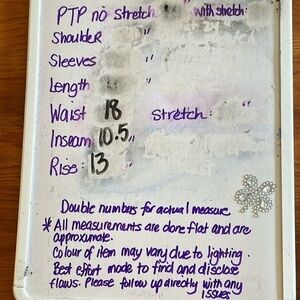 PTP no stretch: " with stretch:
Shoulder "
Sleeves "
Length "
Waist 18 Stretch:
Inseam 10.5"
Rise: 13
Double numbers for actual measure
* All measurements are done flat and are
approximate.
Colour of item may vary due to lighting.
Best effort made to find and disclose
flaws. Please follow up directly with any
Issues